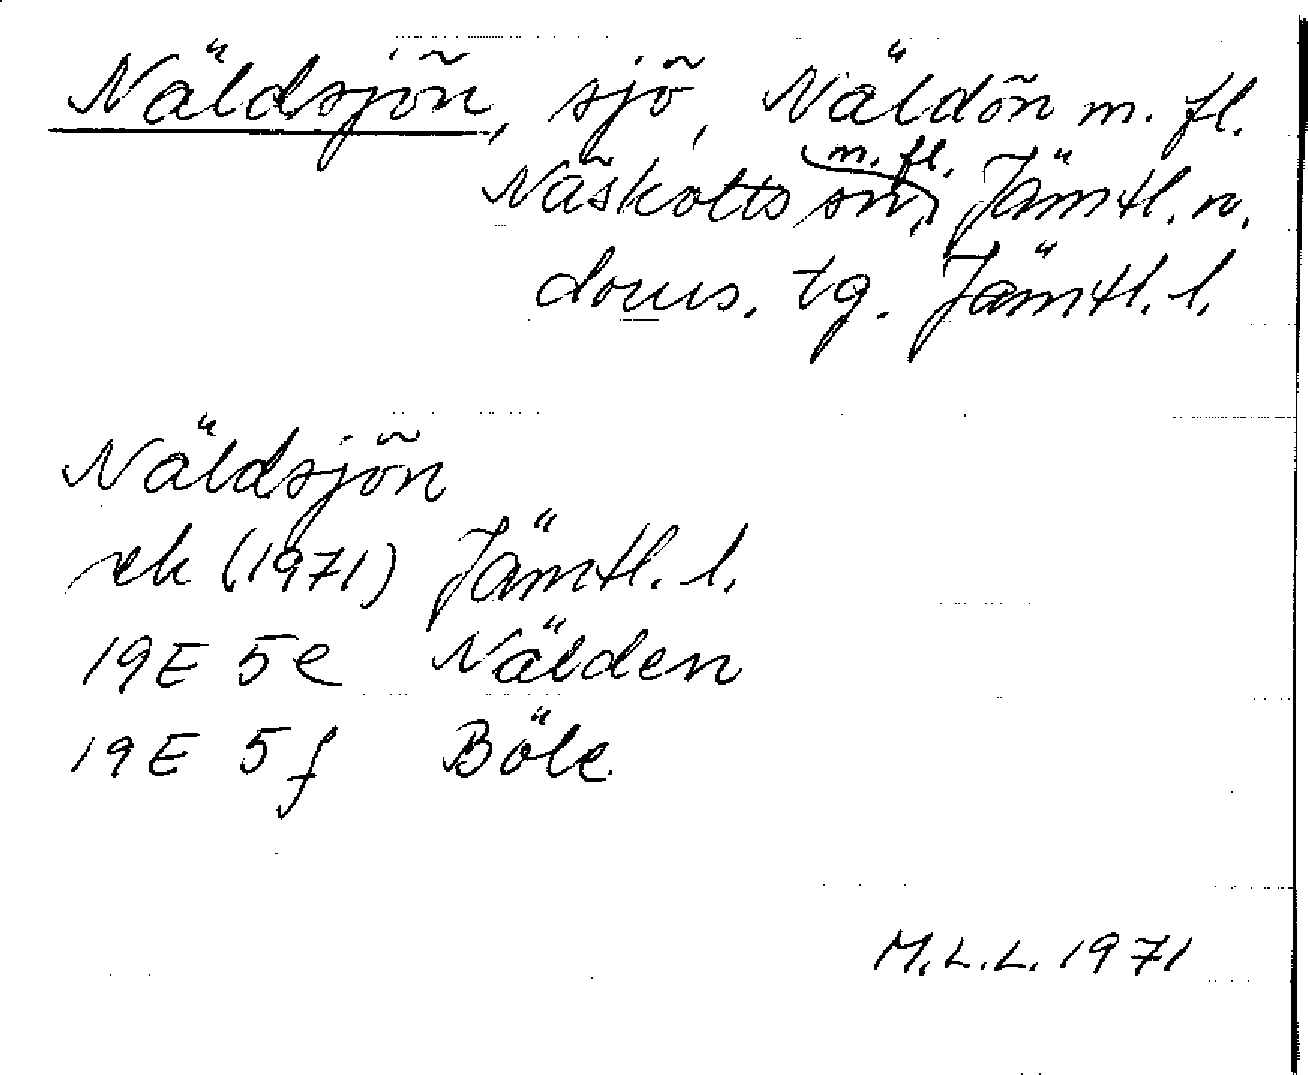 Näldsjön, sjö, Näldön m. fl.
Näskotts sn m. fl., Jämtl. n.
doms. tg. Jämtl. l.
Näldsjön
rek (1971) Jämtl. l.
19E 5e Nälden
19E 5f Böle
M.L.L. 1971